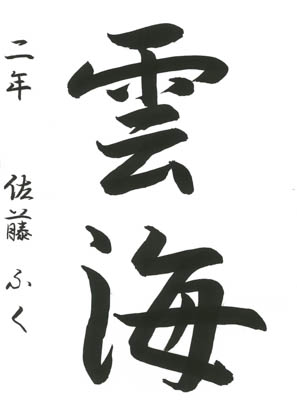 雲海
二年 佐藤ふく